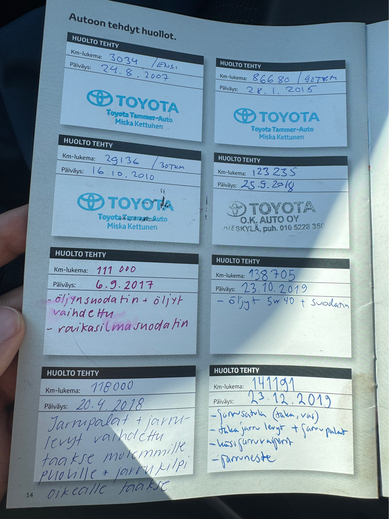 Autoon tehdyt huollot.
HUOLTO TEHTY
Km-lukema: 3034 /ENSI
Päiväys: 24.8.2007
TOYOTA
Toyota Tammer-Auto
Miska Kettunen
HUOLTO TEHTY
Km-lukema: 29136 /30TKM
Päiväys: 16.10.2010
TOYOTA
Toyota Tammer-Auto
Miska Kettunen
HUOLTO TEHTY
Km-lukema: 111 000
Päiväys: 6.9.2017
- öljynsuodatin + öljyt
vaihdettu
- raikasilmasuodatin
HUOLTO TEHTY
Km-lukema: 118000
Päiväys: 20.4.2018
Jarrupalat + jarru-
levyt vaihdettu
taakse molemmille
puolille + jarrukilpi
oikealle taakse
14
HUOLTO TEHTY
Km-lukema: 86680 /90TKM
Päiväys: 28.1.2015
TOYOTA
Toyota Tammer-Auto
Miska Kettunen
HUOLTO TEHTY
Km-lukema: 123235
Päiväys: 25.5.2018
TOYOTA
O.K. AUTO OY
NIESKYLÄ, puh. 010 5228 350
HUOLTO TEHTY
Km-lukema: 138705
Päiväys: 23.10.2019
- öljyt 5w40 + suodatin
HUOLTO TEHTY
Km-lukema: 141191
Päiväys: 23.12.2019
- jarrusatula (taka, vas)
- taka jarru levyt + jarrupalat
- käsijarruvaijerit
- jarruneste